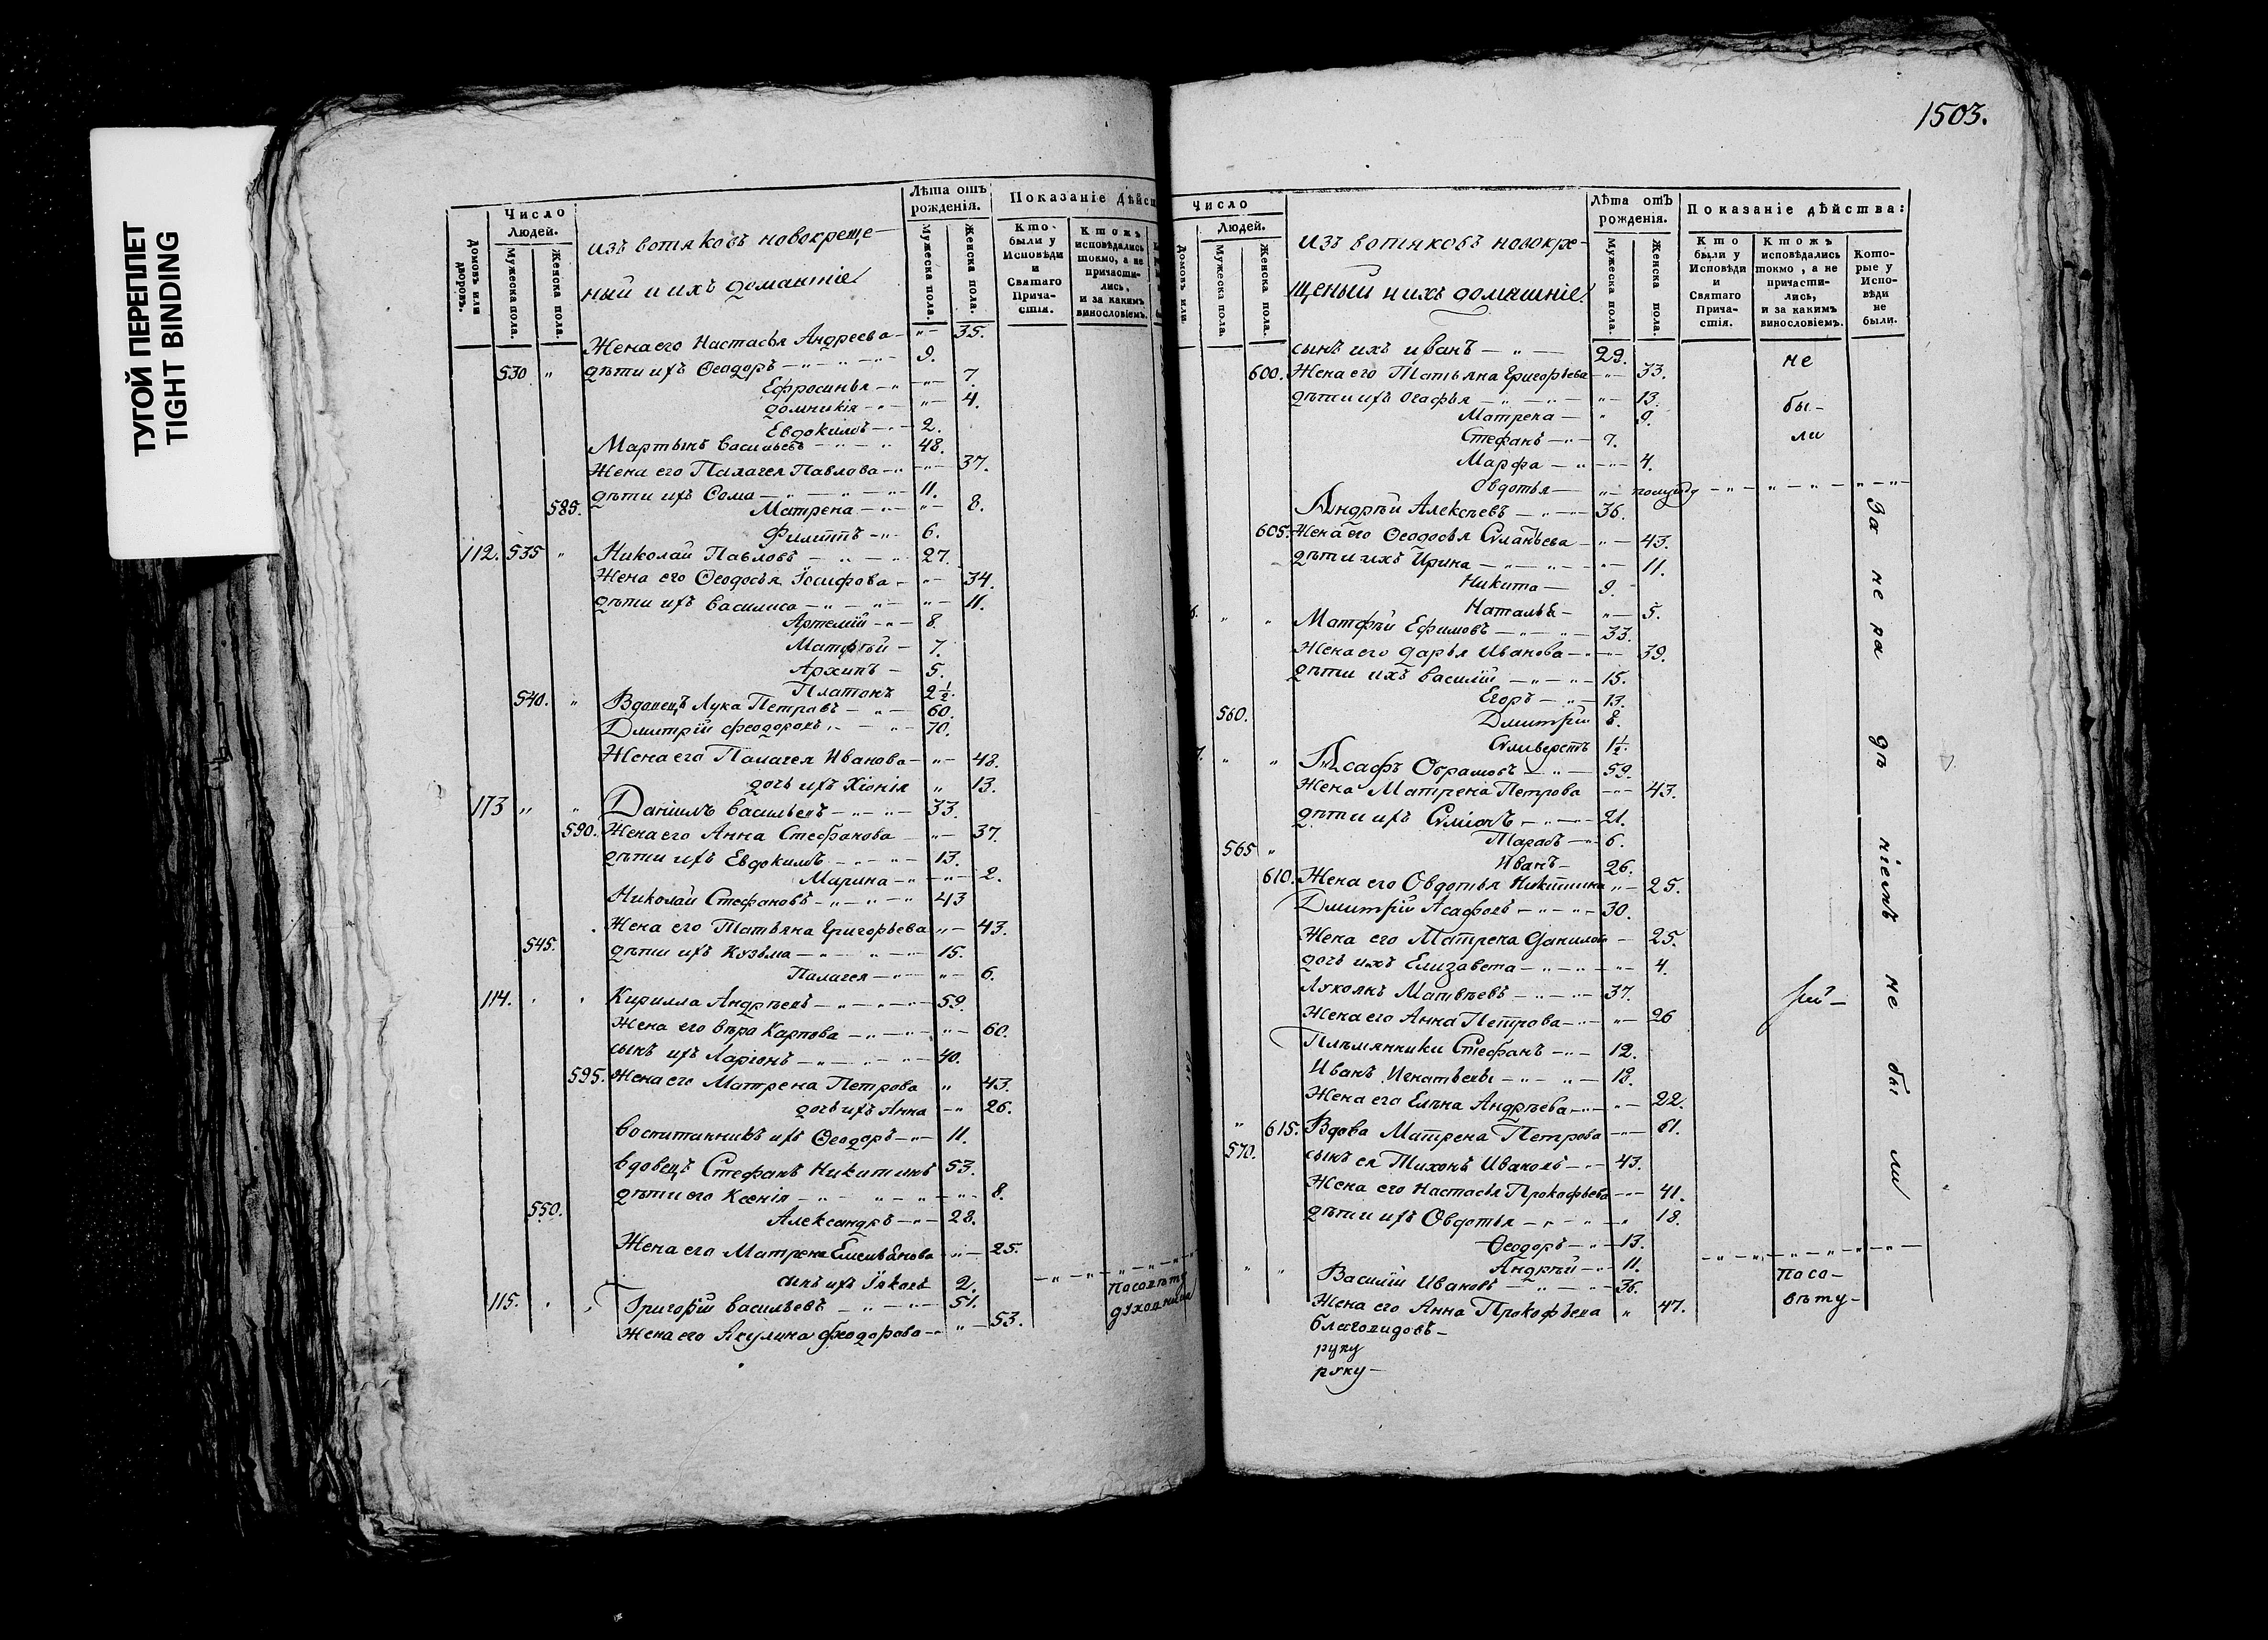 ТУГОЙ ПЕРЕПЛЕТ
TIGHT BINDING
Домовъ или дворовъ.
Число Людей.
Мужеска пола.
Женска пола.
изъ вотяковъ новокреще-
ный и ихъ домашніе
Лѣта отъ рожденія.
Мужеска пола.
Женска пола.
Показаніе Дѣйс
Кто были у Исповѣди и Святаго Причастія.
Ктожъ исповѣдались токмо, а не причастились, и за какимъ винословіемъ.
Жена его Настасья Андреева — „ — 35.
530 „ дѣти ихъ Ѳеодоръ — „ — 9.
Ефросинья — „ — 7.
домникія — „ — 4.
Евдокимъ — „ — 2.
Мартынъ Васильевъ — „ — 48.
Жена его Палагея Павлова — „ — 37.
дѣти ихъ Ѳома — „ — 11.
585. Матрена — „ — 8.
Филиппъ — „ — 6.
112. 535 „ Николай Павловъ — „ — 27.
Жена его Ѳеодосья Іосифова — „ — 34.
дѣти ихъ Василиса — „ — 11.
Артемій — „ — 8.
Матфѣй — 7.
Архипъ — 5.
Платонъ 2½.
540. „ Вдовецъ Лука Петровъ — „ — 60.
Дмитрій Феодоровъ — „ — 70.
Жена его Палагея Иванова — „ — 48.
дочь ихъ Хіонія „ 13.
173 „ „ Даніилъ Васильевъ — „ — 33.
590. Жена его Анна Стефанова — „ — 37.
дѣти ихъ Евдокимъ — „ — 13.
Марина — „ — 2.
Николай Стефановъ — „ — 43
Жена его Татьяна Григорьева „ — 43.
545. дѣти ихъ Козьма — „ — 15.
Палагея — „ — 6.
114. Кирилла Андрѣевъ — „ — 59.
Жена его Вѣра Карпова — „ — 60.
сынъ ихъ Ларіонъ — „ — 40.
595. Жена его Матрена Петрова „ 43.
дочь ихъ Анна — „ 26.
Воспитанникъ ихъ Ѳеодоръ — „ — 11.
вдовецъ Стефанъ Никитинъ 53.
дѣти его Ксенія — „ — 8.
550. Александръ — „ — 28.
Жена его Матрена Емельянова — „ — 25.
сынъ ихъ Іаковъ 2.
115. Григорій Васильевъ — „ — 51.
Посовѣту
духовника
Жена его Акулина Феодорова — „ — 53.
1503.
Домовъ или
Число Людей.
Мужеска пола.
Женска пола.
изъ вотяковъ новокре-
щеный и ихъ домашніе
Лѣта отъ рожденія.
Мужеска пола.
Женска пола.
Показаніе дѣйства:
Кто были у Исповѣди и Святаго Причастія.
Ктожъ исповѣдались токмо, а не причастились, и за какимъ винословіемъ.
Которые у Исповѣди не были.
сынъ ихъ Иванъ — „ — 29. не
600. Жена его Татьяна Григорьева — „ — 33.
дѣти ихъ Огафья — „ — 13. бы-
Матрена — „ 9.
Стефанъ — „ — 7. ли
Марфа — „ — 4.
Овдотья — „ — полугоду
Андрѣй Алексѣевъ — „ — 36.
605. Жена его Ѳеодосья — „ — 43.
дѣти ихъ Ирина — „ — 11.
Никита — 9.
Наталья — „ — 5.
6. „ „ Матфѣй Ефимовъ — „ — 33.
Жена его Дарья Иванова — „ — 39.
дѣти ихъ Василій — „ — 15.
Егоръ — „ — 13.
560. Дмитрій 8.
Силиверстъ 1½.
7. „ „ Асафъ Обрамовъ — „ — 59.
Жена Матрена Петрова — „ — 43.
дѣти ихъ — „ — 21.
565 „ Тарасъ — „ — 6.
Иванъ — 26.
610. Жена его Овдотья Никитина „ — 25.
Дмитрій Асафовъ — „ — 30.
Жена его Матрена — 25.
дочь ихъ Елизавета — „ — 4.
Лукоянъ Матвѣевъ — „ — 37.
Жена его Анна Петрова — „ — 26
Племянники Стефанъ — „ — 12.
Иванъ Игнатьевы — „ — 18.
Жена его Елена Андрѣева — „ — 22.
„ 615. Вдова Матрена Петрова — „ — 61.
570. сынъ ея Тихонъ Ивановъ — „ — 43.
Жена его Настасья Прокофьева — „ — 41.
дѣти ихъ Овдотья — „ — 18.
Ѳеодоръ — „ — 13.
Андрѣй — „ — 11.
„ „ Василій Ивановъ — „ — 36. Посо-
Жена его Анна Прокофьева „ 47. вѣту-
За нерадѣніемъ не были
благовидовъ —
руку